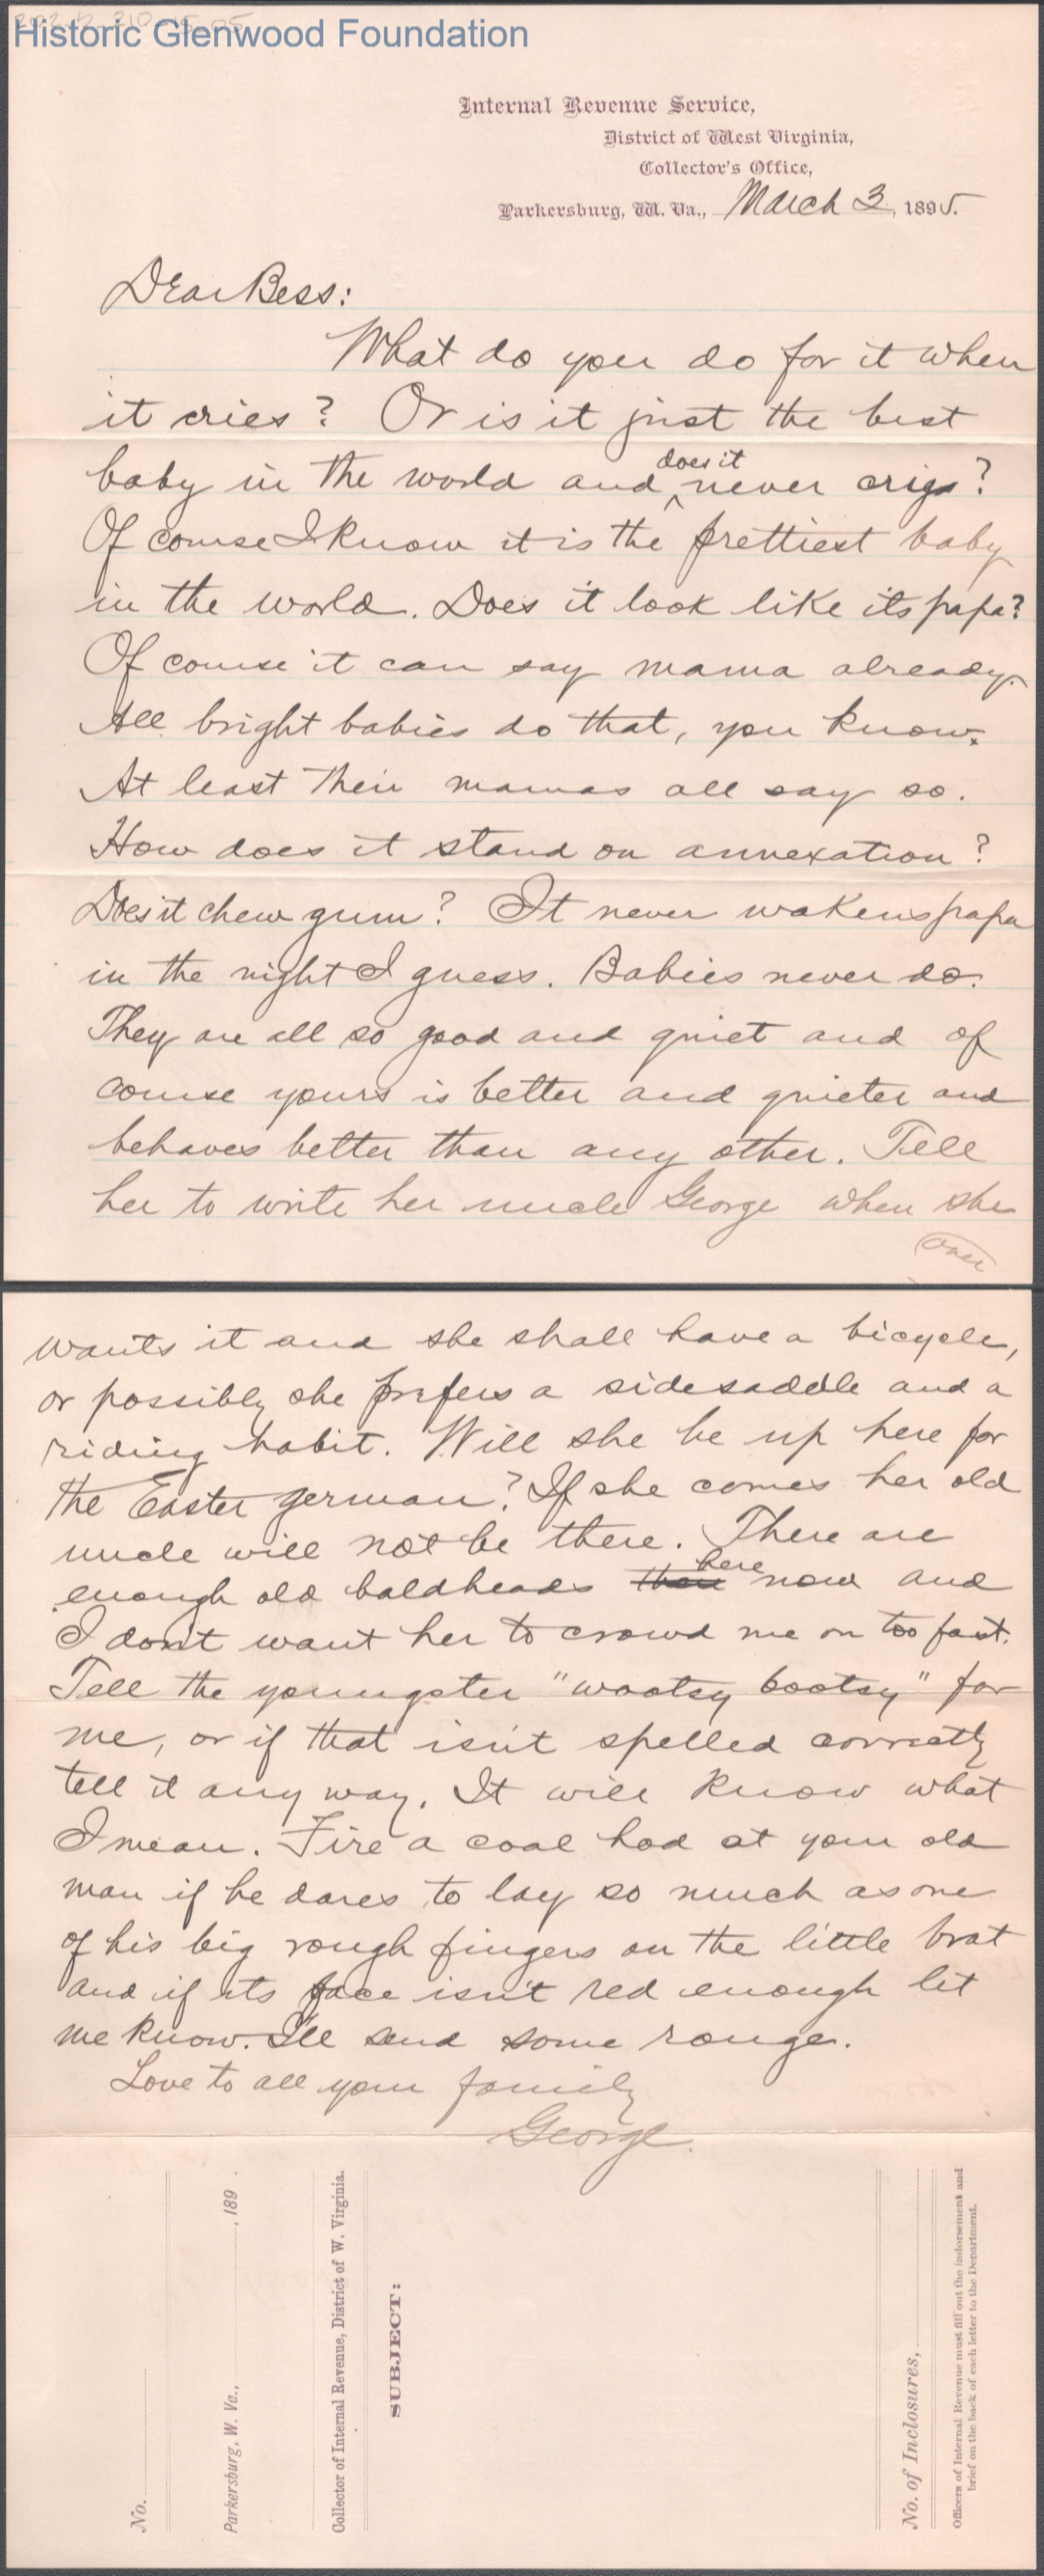 Historic Glenwood Foundation
Internal Revenue Service,
District of West Virginia,
Collector's Office,
Parkersburg, W. Va., March 3, 1895.
Dear Bess:
What do you do for it when
it cries? Or is it just the best
does it
baby in the world and never crys?
Of course I know it is the prettiest baby
in the world. Does it look like its papa?
Of course it can say mama already.
All bright babies do that, you know.
At least their mamas all say so.
How does it stand on annexation?
Does it chew gum? It never wakens papa
in the night I guess. Babies never do.
They are all so good and quiet and of
course yours is better and quieter and
behaves better than any other. Tell
her to write her uncle George when she
over
wants it and she shall have a bicycle,
or possibly she prefers a sidesaddle and a
riding habit. Will she be up here for
the Easter german? If she comes her old
uncle will not be there. There are
here
enough old baldheads now and
I don't want her to crowd me on too fast.
Tell the youngster "wootsy bootsy" for
me, or if that isn't spelled correctly
tell it any way. It will know what
I mean. Fire a coal hod at your old
man if he dares to lay so much as one
of his big rough fingers on the little brat
and if its face isn't red enough let
me know. I'll send some rouge.
Love to all your family
George.
No.
Parkersburg, W. Va., , 189 .
Collector of Internal Revenue, District of W. Virginia.
SUBJECT:
No. of Inclosures,
Officers of Internal Revenue must fill out the indorsement and
brief on the back of each letter to the Department.